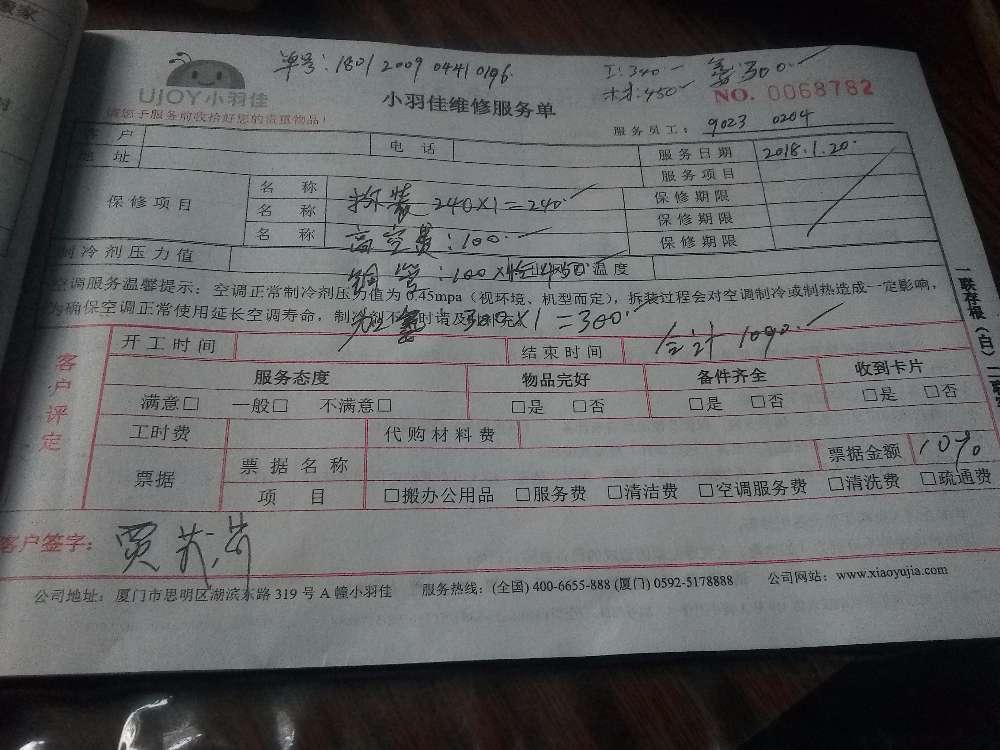 单号:1801 2009 0441 0196.
工:340
材:450
300.
UJOY小羽佳
小羽佳维修服务单
NO. 0068782
请您于服务前收拾好您的贵重物品!
服务员工: 9023 0204
客户 电话 服务日期 2018.1.20.
地址 服务项目
保修项目 名称 拆装 240X1=240. 保修期限
名称 高空费:100. 保修期限
名称 保修期限
制冷剂压力值 铜管:100X 450 温度
空调服务温馨提示:空调正常制冷剂压力值为0.45mpa(视环境、机型而定),拆装过程会对空调制冷或制热造成一定影响,
为确保空调正常使用延长空调寿命,制冷剂不 时请及 补充 300X1=300.
合计 1090.
开工时间 结束时间
客户评定
服务态度 物品完好 备件齐全 收到卡片
满意□ 一般□ 不满意□ □是 □否 □是 □否 □是 □否
工时费 代购材料费
票据 票据名称 票据金额 10%
项目 □搬办公用品 □服务费 □清洁费 □空调服务费 □清洗费 □疏通费
客户签字: 贾
公司地址:厦门市思明区湖滨东路319号A幢小羽佳 服务热线:(全国)400-6655-888 (厦门) 0592-5178888 公司网站:www.xiaoyujia.com
一联存根(白)